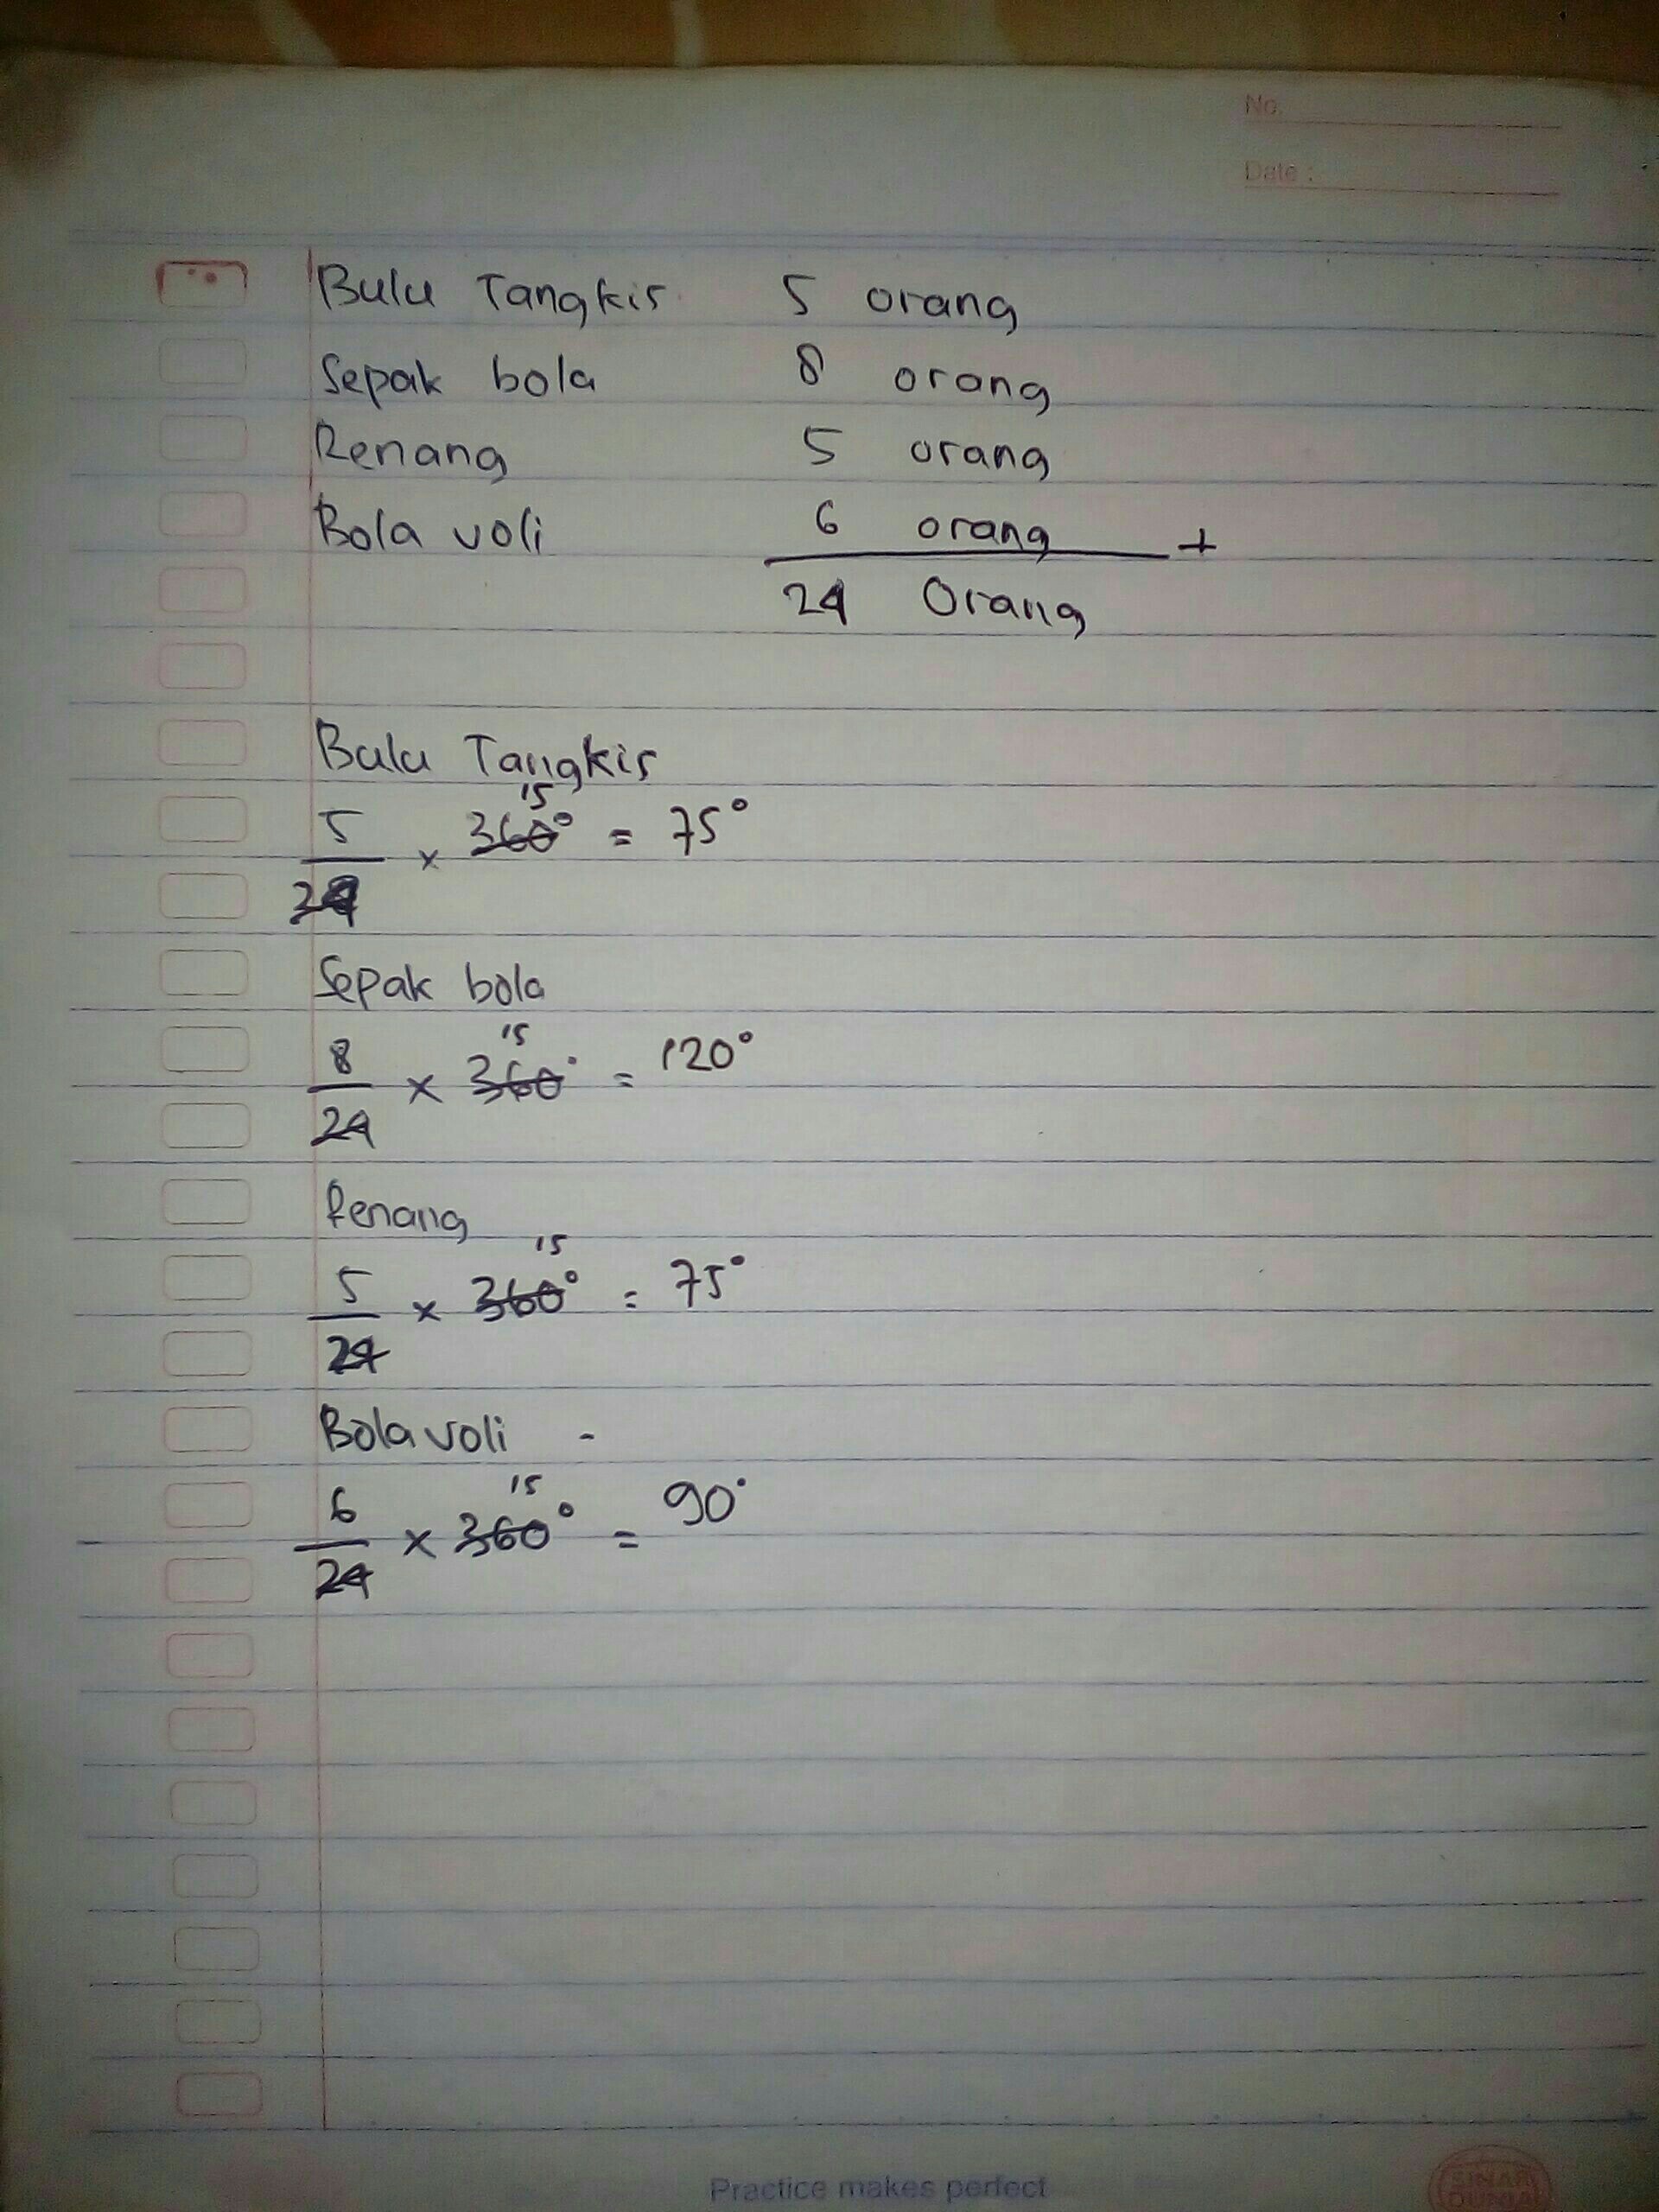 No.
Date :
Bulu Tangkis 5 orang
Sepak bola 8 orang
Renang 5 orang
Bola voli 6 orang +
24 Orang
Bulu Tangkis
5/24 × 360° = 75°
15
Sepak bola
8/24 × 360° = 120°
15
Renang
5/24 × 360° = 75°
15
Bola voli -
6/24 × 360° = 90°
15
Practice makes perfect
SINAR
DUNIA